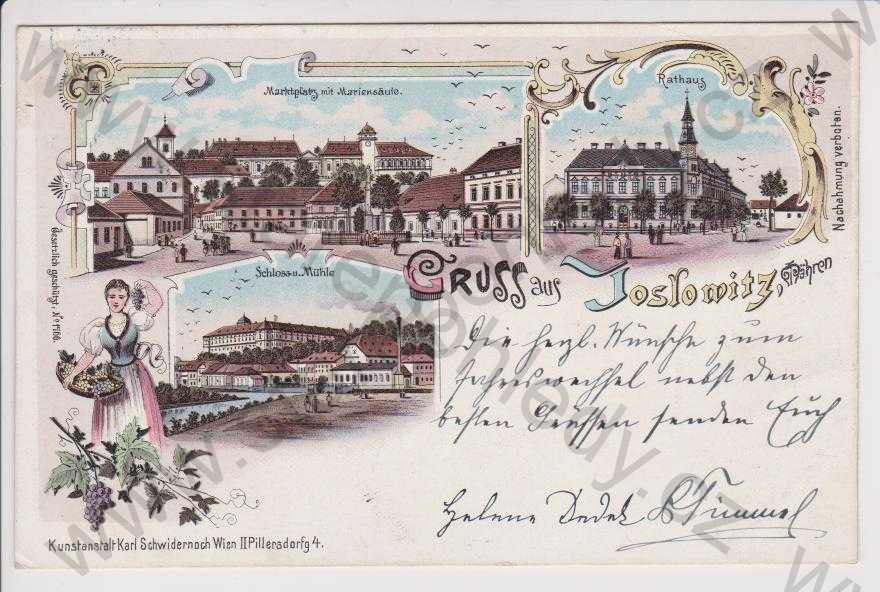 Marktplatz mit Mariensäule.
Rathaus
Nachahmung verboten.
Gesetzlich geschützt. No 1166.
Schloss u. Mühle
Gruss aus Joslowitz, Mähren
Die herzl. Wünsche zum
Jahreswechsel nebst den
besten Grüssen senden Euch
Helene Dedek
Kunstanstalt Karl Schwidernoch Wien II Pillersdorfg 4.